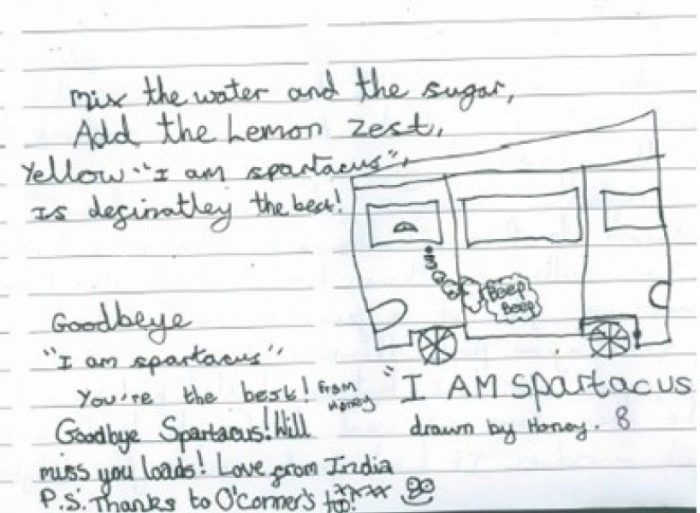 Mix the water and the sugar,
Add the Lemon zest,
Yellow "I am spartacus",
Is deginatley the best!
Beep
Beep
Goodbeye
"I am spartacus"
You're the best! From
Honey
"I AM Spartacus
drawn by Honey. 8
Goodbye Spartacus! Will
miss you loads! Love from India
P.S. Thanks to O'Conner's too! xxxx